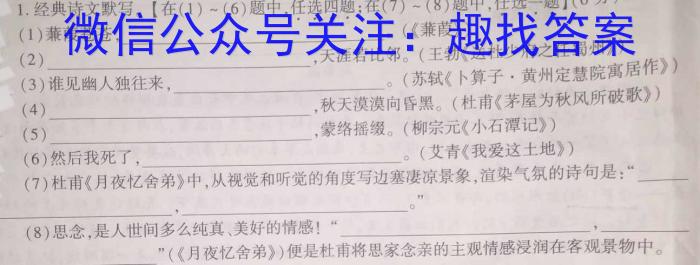 1.经典诗文默写。【在(1)~(6)题中,任选四题;在(7)~(8)题中,任选一题】(6分)
微信公众号关注：趣找答案
(1)蒹葭苍苍, 《蒹葭
(2) ,天涯若比邻。(王勃《送杜少府之任蜀州》)
(3)谁见幽人独往来, 。(苏轼《卜算子·黄州定慧院寓居作》)
(4) ,秋天漠漠向昏黑。(杜甫《茅屋为秋风所破歌》)
(5) ,蒙络摇缀。(柳宗元《小石潭记》)
(6)然后我死了, 。(艾青《我爱这土地》)
(7)杜甫《月夜忆舍弟》中,从视觉和听觉的角度写边塞凄凉景象,渲染气氛的诗句是:“
, 。”
(8)思念,是人世间多么纯真、美好的情感!“ ,
”(《月夜忆舍弟》)便是杜甫将思家念亲的主观情感浸润在客观景物中。